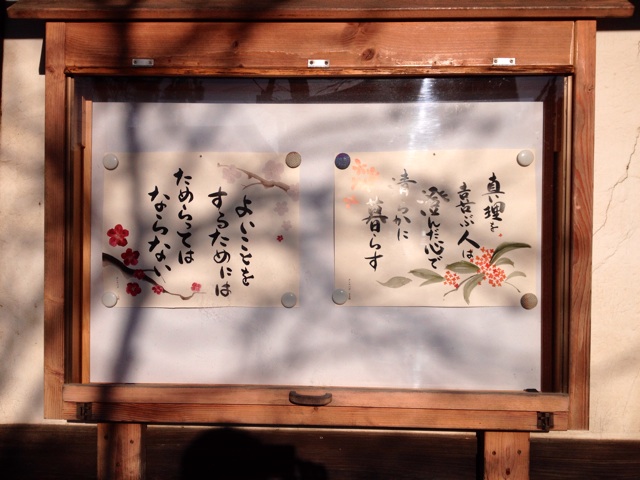 真理を
喜ぶ人は
澄んだ心で
清らかに
暮らす
よいことを
するためには
ためらっては
ならない